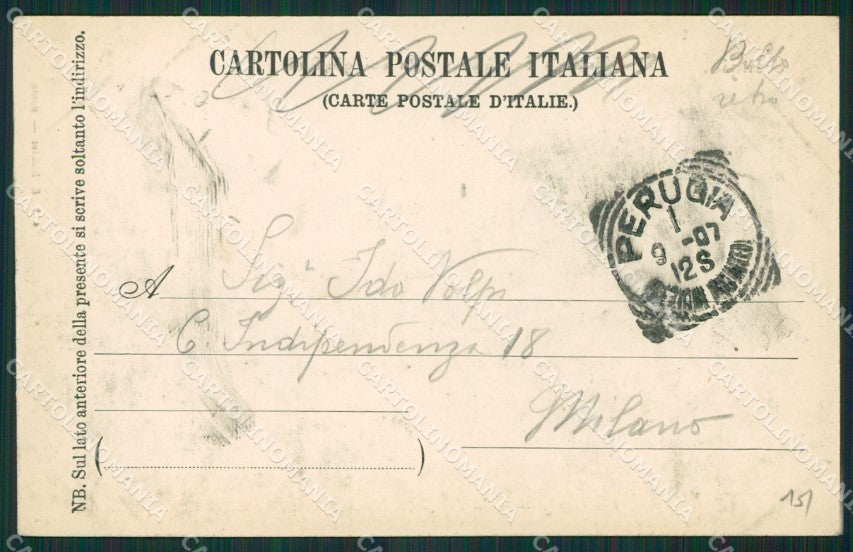 CARTOLINA POSTALE ITALIANA
(CARTE POSTALE D'ITALIE.)
Bollo
retro
NB. Sul lato anteriore della presente si scrive soltanto l'indirizzo.
PERUGIA
1
9 -07
12S
A Sigr Ido Volpi
C. Indipendenza 18
Milano
15/
CARTOLINOMANIA